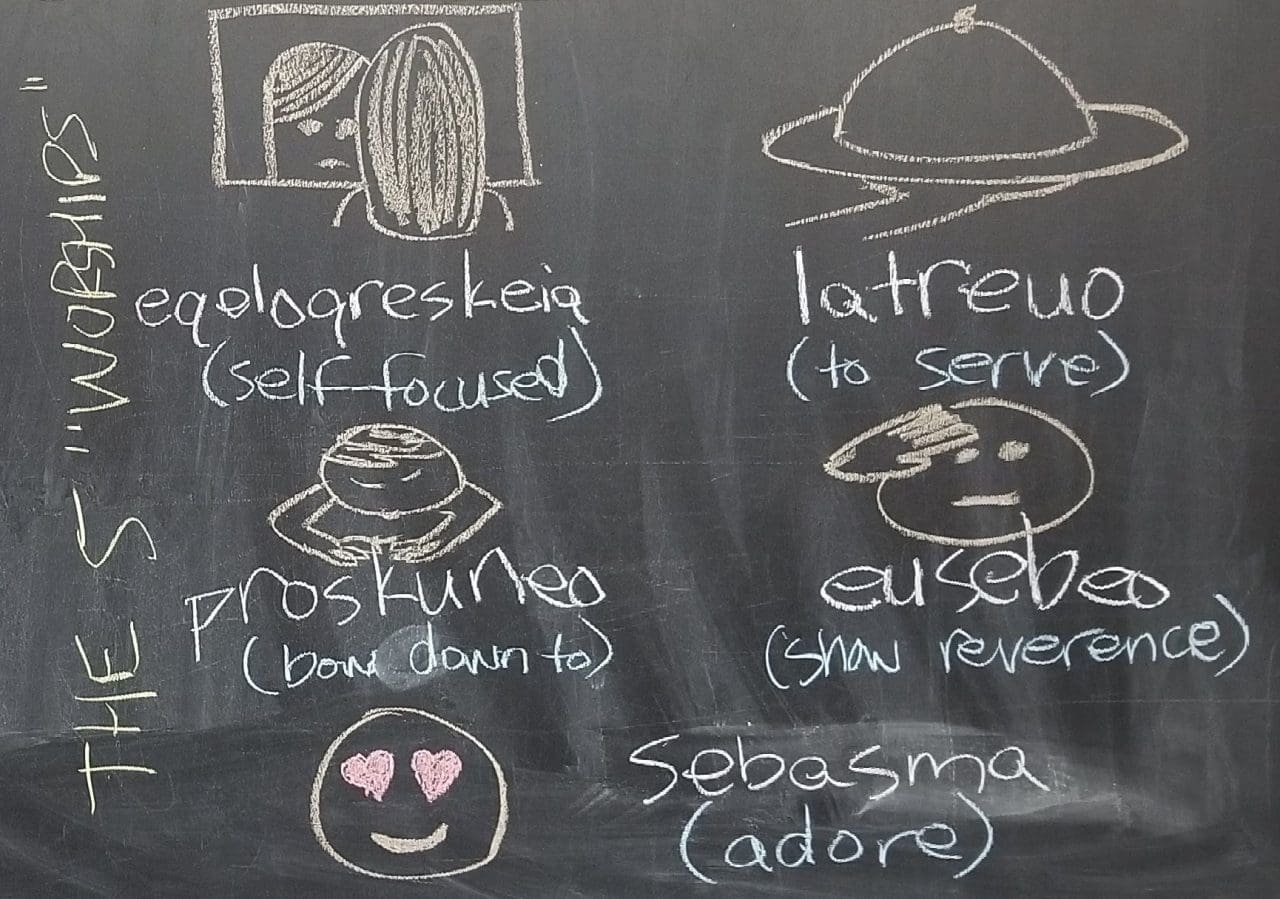 THE 5 "WORSHIPS"
eqeloqreskeia
(self-focused)
latreuo
(to serve)
proskuneo
(bow down to)
eusebeo
(show reverence)
sebasma
(adore)